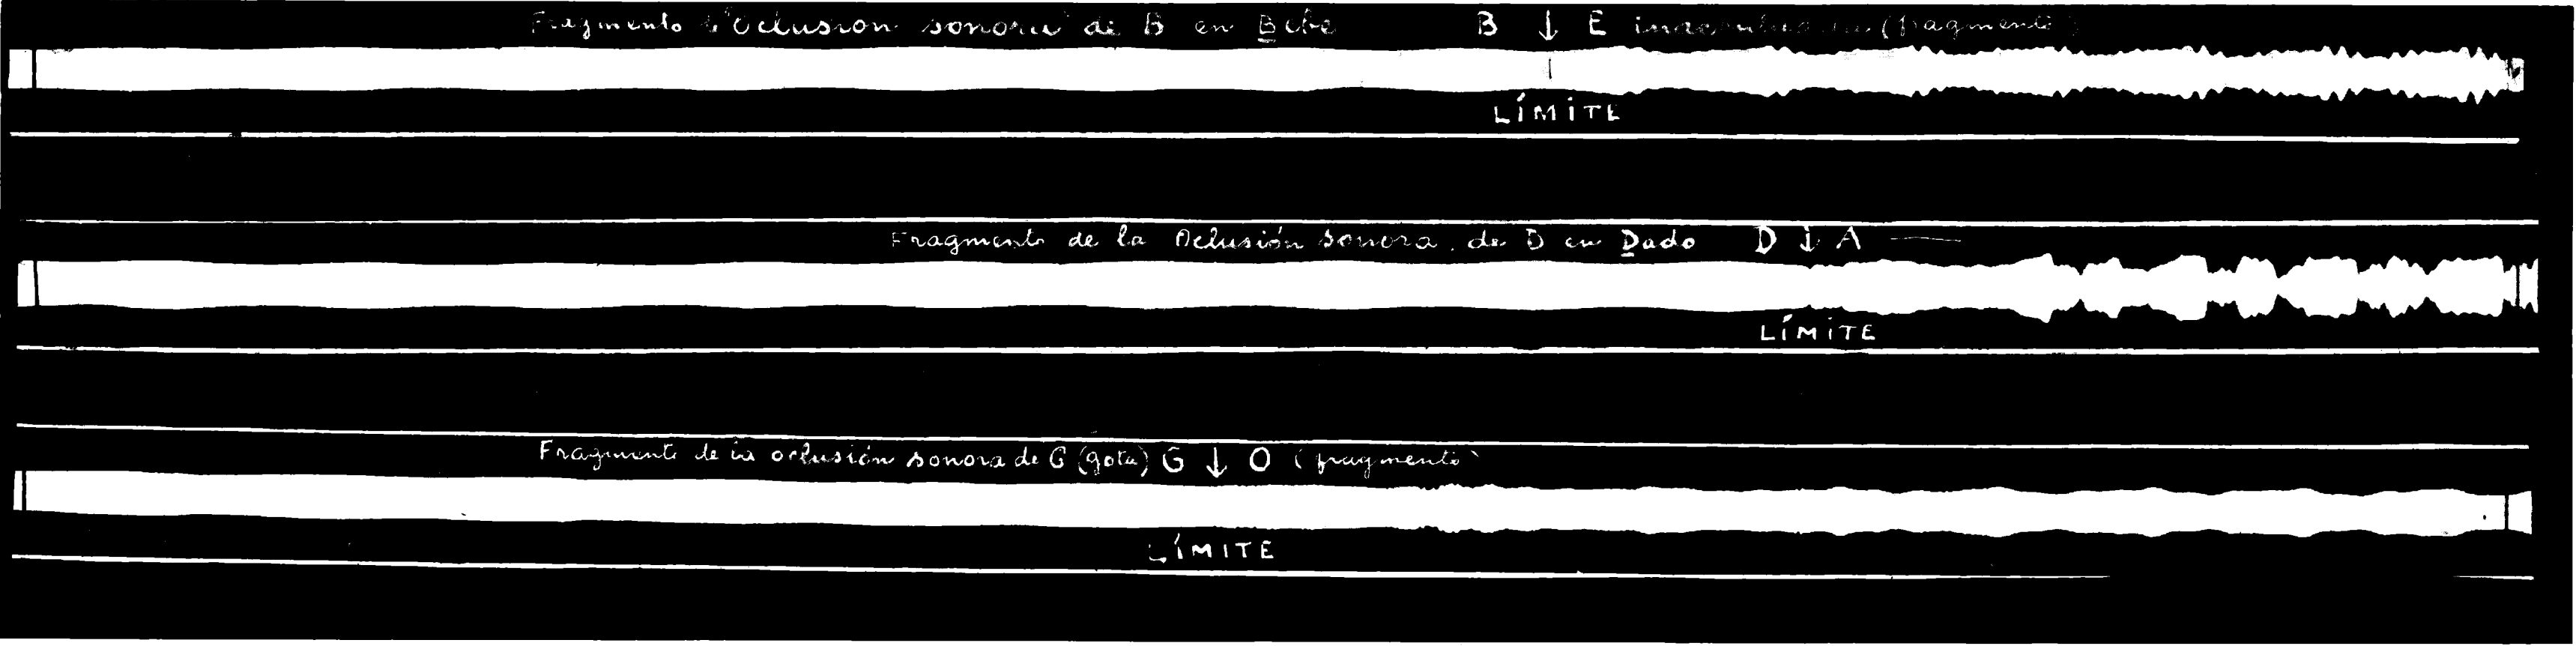 Fragmento "Oclusion sonora" de B en Bebe B ↓ E (fragmento)
LÍMITE
Fragmento de la Oclusión Sonora de D en Dado D ↓ A —
LÍMITE
Fragmento de la oclusión sonora de G (gota) G ↓ O (fragmento)
LÍMITE